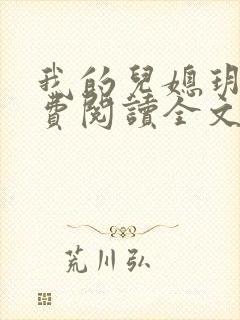 我的兒媳玥
費閱讀全文
荒川弘